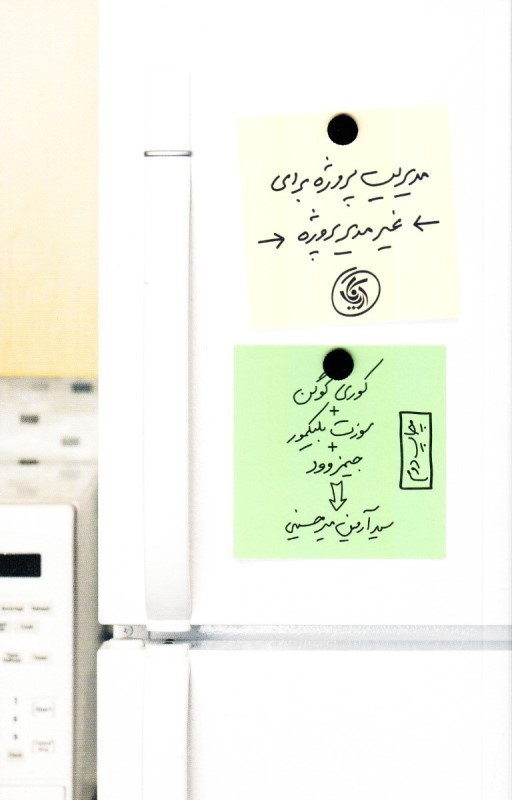 مدیریت پروژه برای
← غیر مدیر پروژه →
آریانا قلم
کوری کوگن
+
سوزت بلیکمور
+
جیمز وود
سید آرمین میرحسینی
چاپ دوم